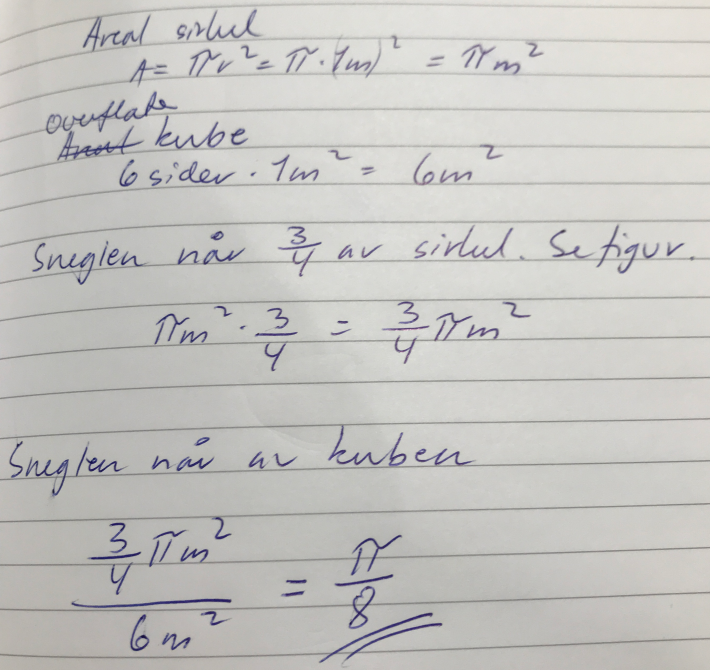 Areal sirkel
A = πr² = π · (1m)² = π m²
Overflate
Areal kube
6 sider · 1m² = 6m²
Sneglen når 3/4 av sirkel. Se figur.
πm² · 3/4 = 3/4 πm²
Sneglen når av kuben
(3/4 πm²)/(6m²) = π/8